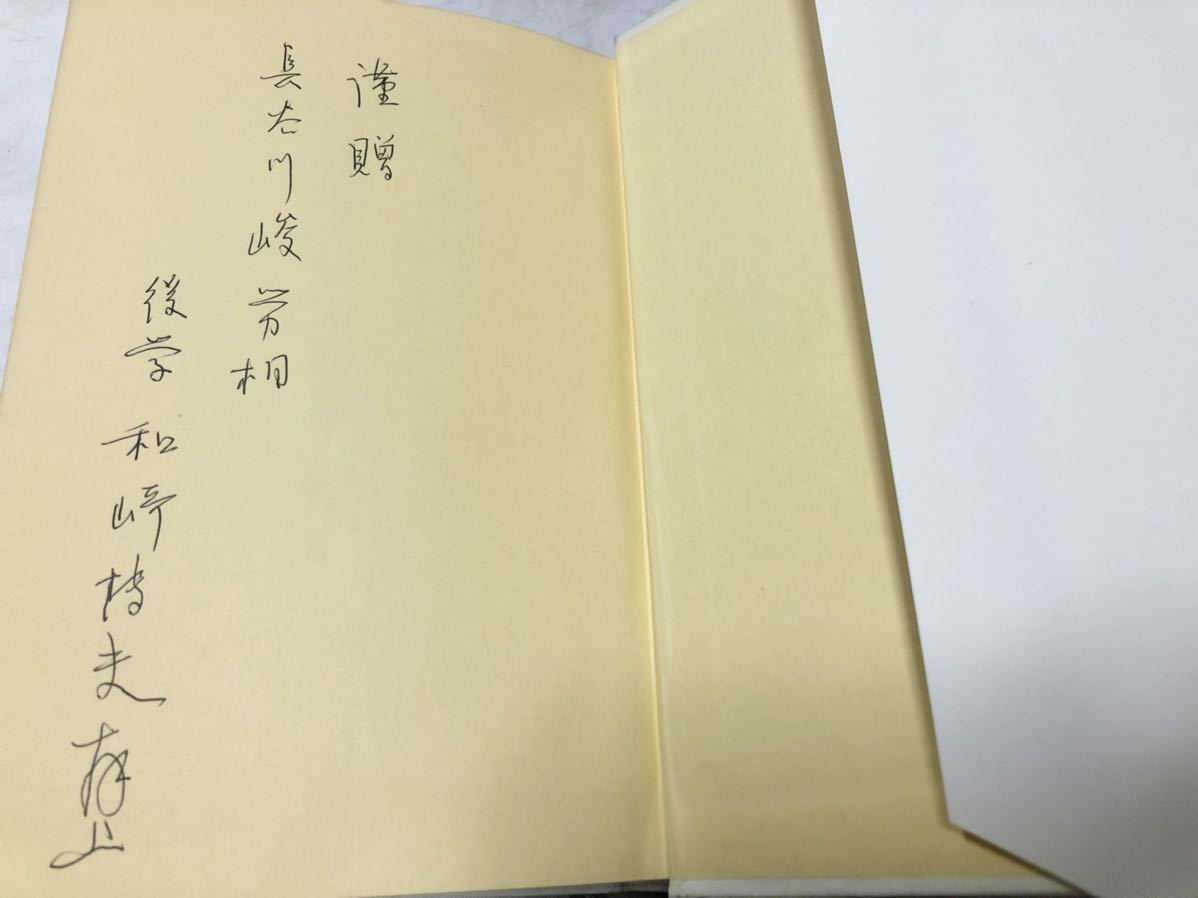 謹贈
長谷川峻労相
後学 和崎博夫 拝上